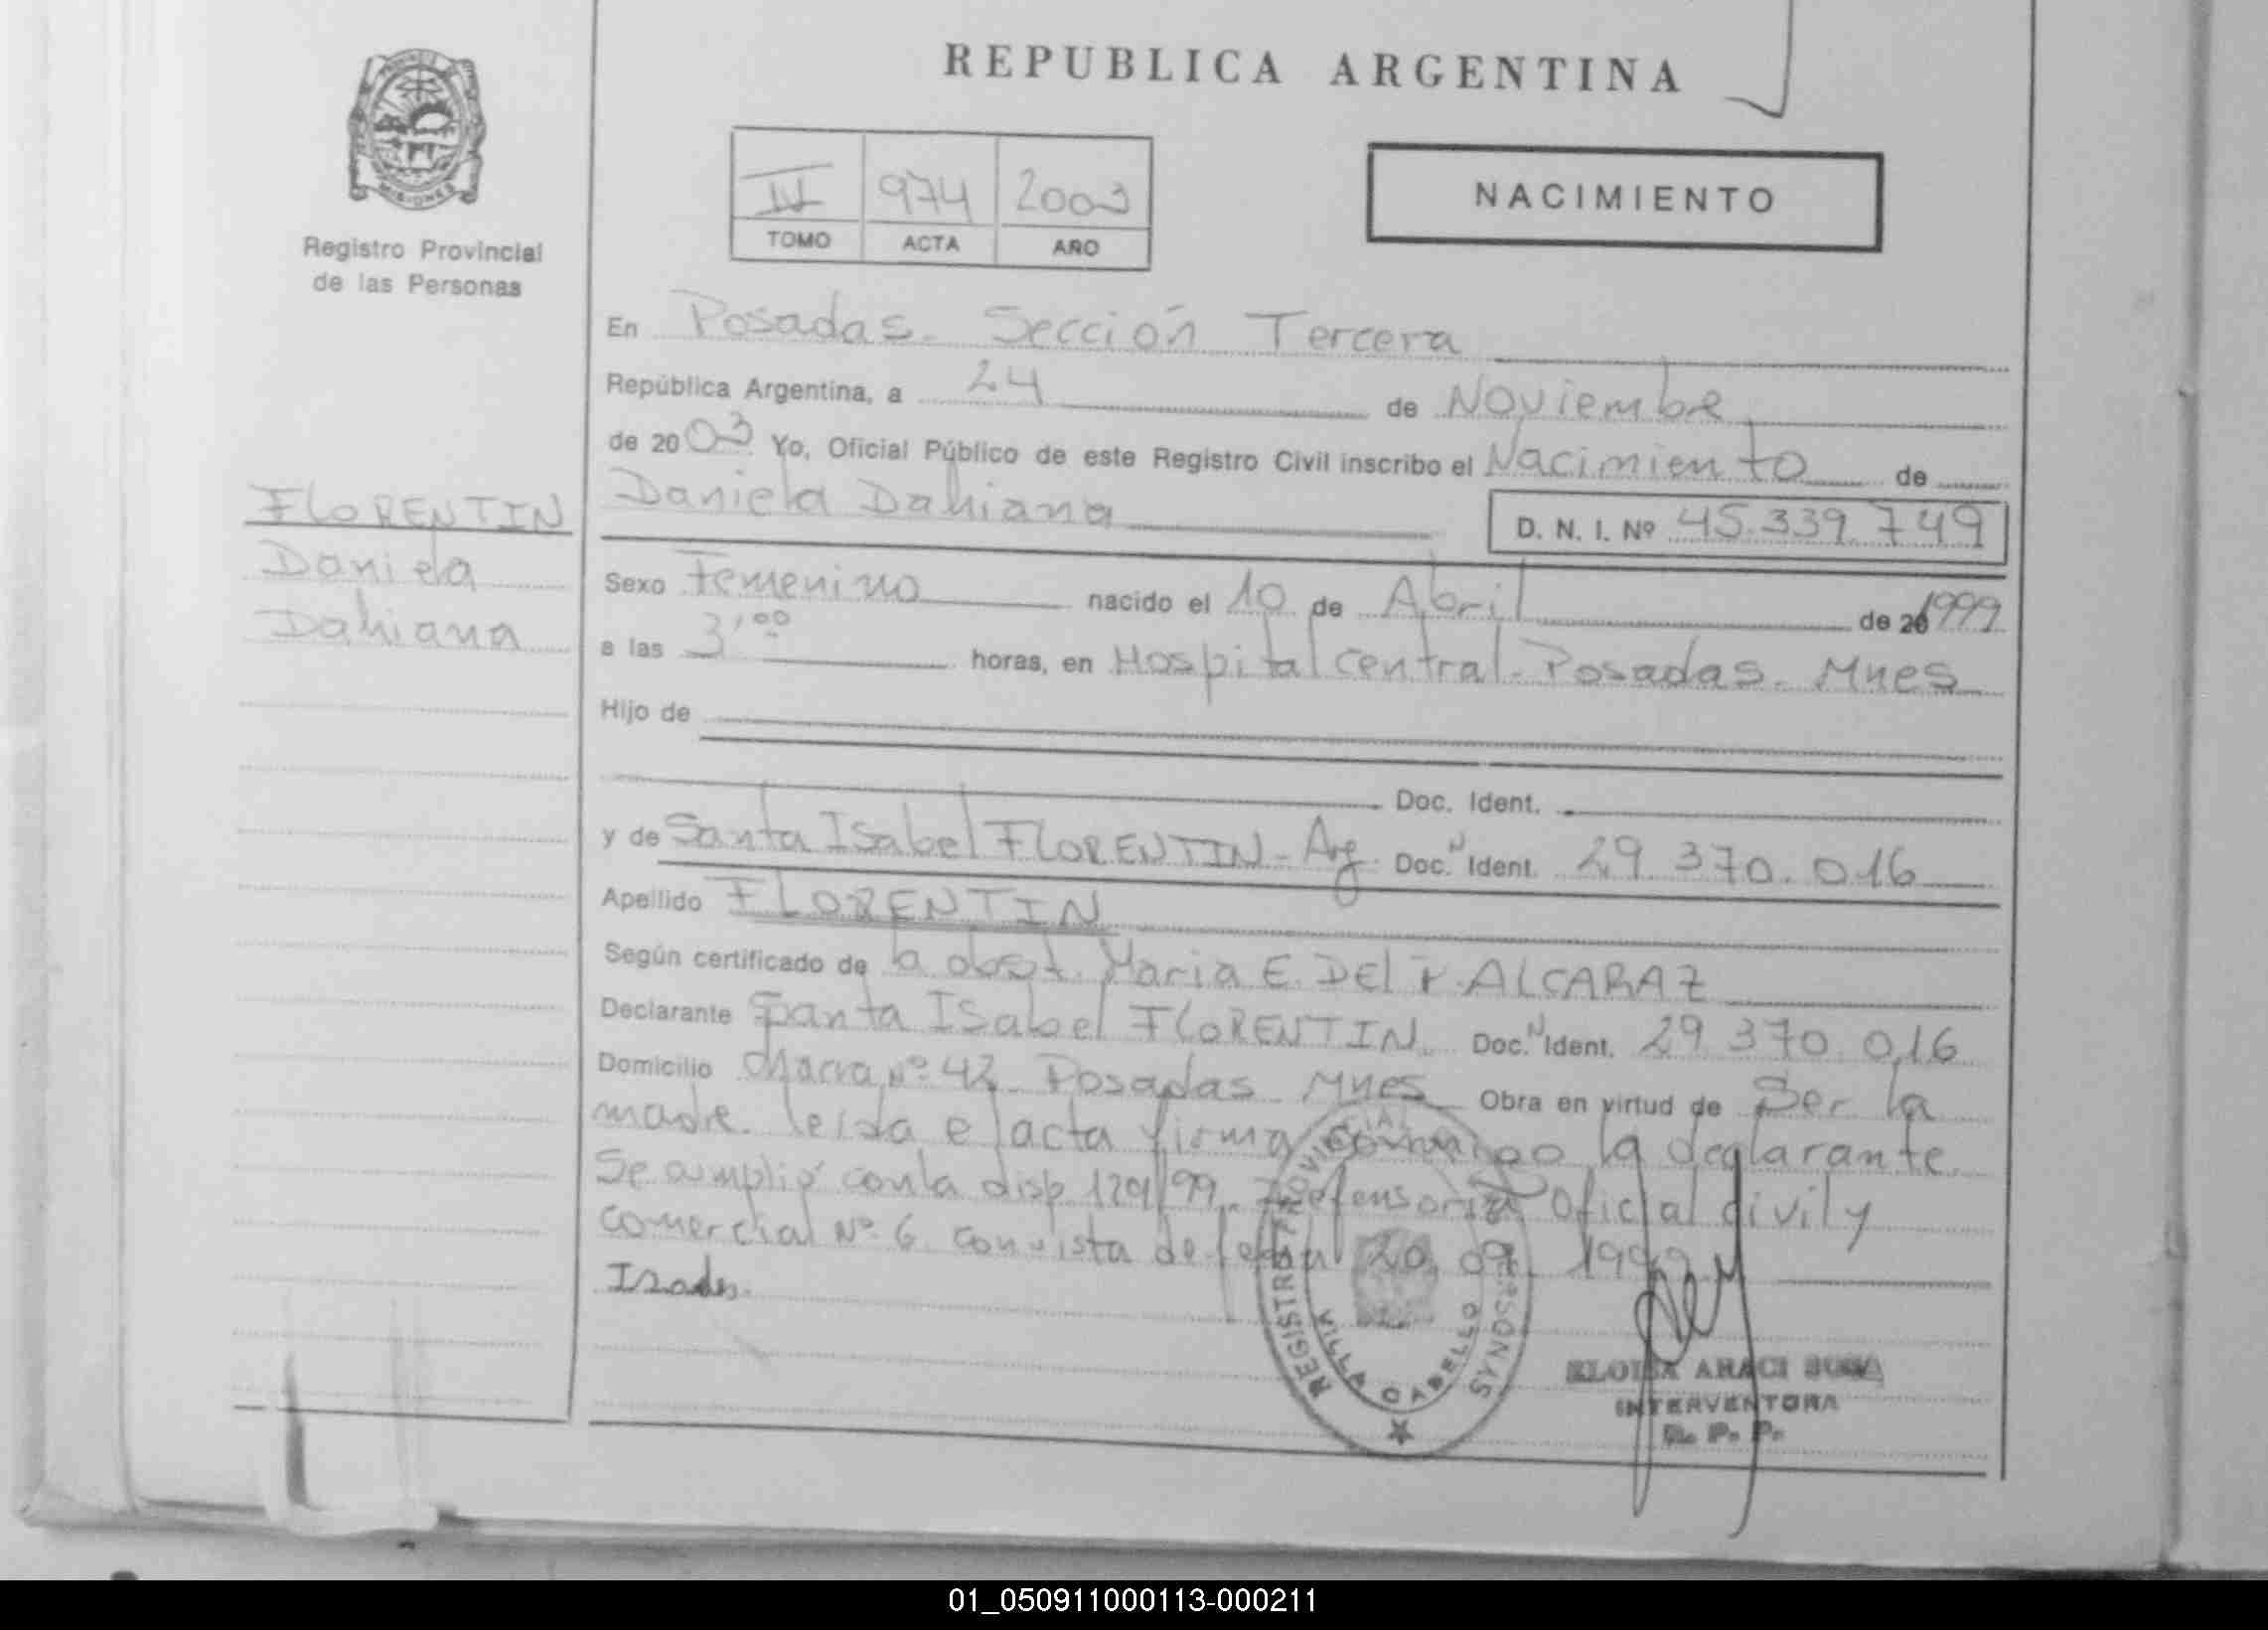 REPUBLICA ARGENTINA
MISIONES
Registro Provincial
de las Personas
IV 974 2003
TOMO ACTA AÑO
NACIMIENTO
En Posadas. Sección Tercera
República Argentina, a 24 de Noviembre
de 2003 Yo, Oficial Público de este Registro Civil inscribo el Nacimiento de
Daniela Dahiana D. N. I. Nº 45.339.749
FLORENTIN
Daniela
Dahiana
Sexo Femenino nacido el 10 de Abril de 20 1999
a las 3,00 horas, en Hospital central - Posadas. Mnes
Hijo de
Doc. Ident.
y de Santa Isabel FLORENTIN - Arg. Doc. N Ident. 29.370.016
Apellido FLORENTIN
Según certificado de la obst. Maria E. DEl ALCARAZ
Declarante Santa Isabel FLORENTIN. Doc. N Ident. 29.370.016
Domicilio Chacra Nº 42 Posadas Mnes Obra en virtud de Ser la
madre. leida el acta firma conmigo la declarante.
Se cumplió con la disp. 1201/99. Defensoria Oficial civil y
comercial Nº 6. con vista de fecha 20. 09. 1999
REGISTRO PROVINCIAL
VILLA CABELLO
ELOISA ARACI SOSA
INTERVENTORA
R. P. P.
01_050911000113-000211